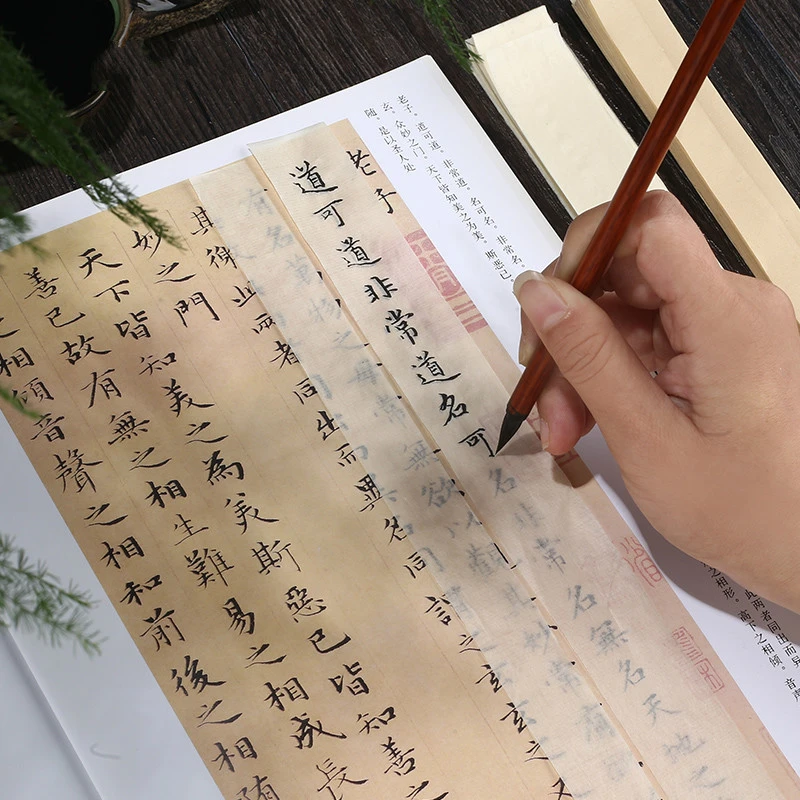 老子。道可道。非常道。名可名。非常名。
此两者同出而异
玄。众妙之门。天下皆知美之为美。斯恶已。
之相形。高下之相倾。音声
随。是以圣人处
老子
道可道非常道名可名非常名無名天地之
有名萬物之母常無欲以觀其妙常有
其徼此兩者同出而異名同謂之玄玄之又
妙之門
天下皆知美之為美斯惡已皆知善之
善已故有無之相生難易之相成長
之相傾音聲之相和前後之相隨